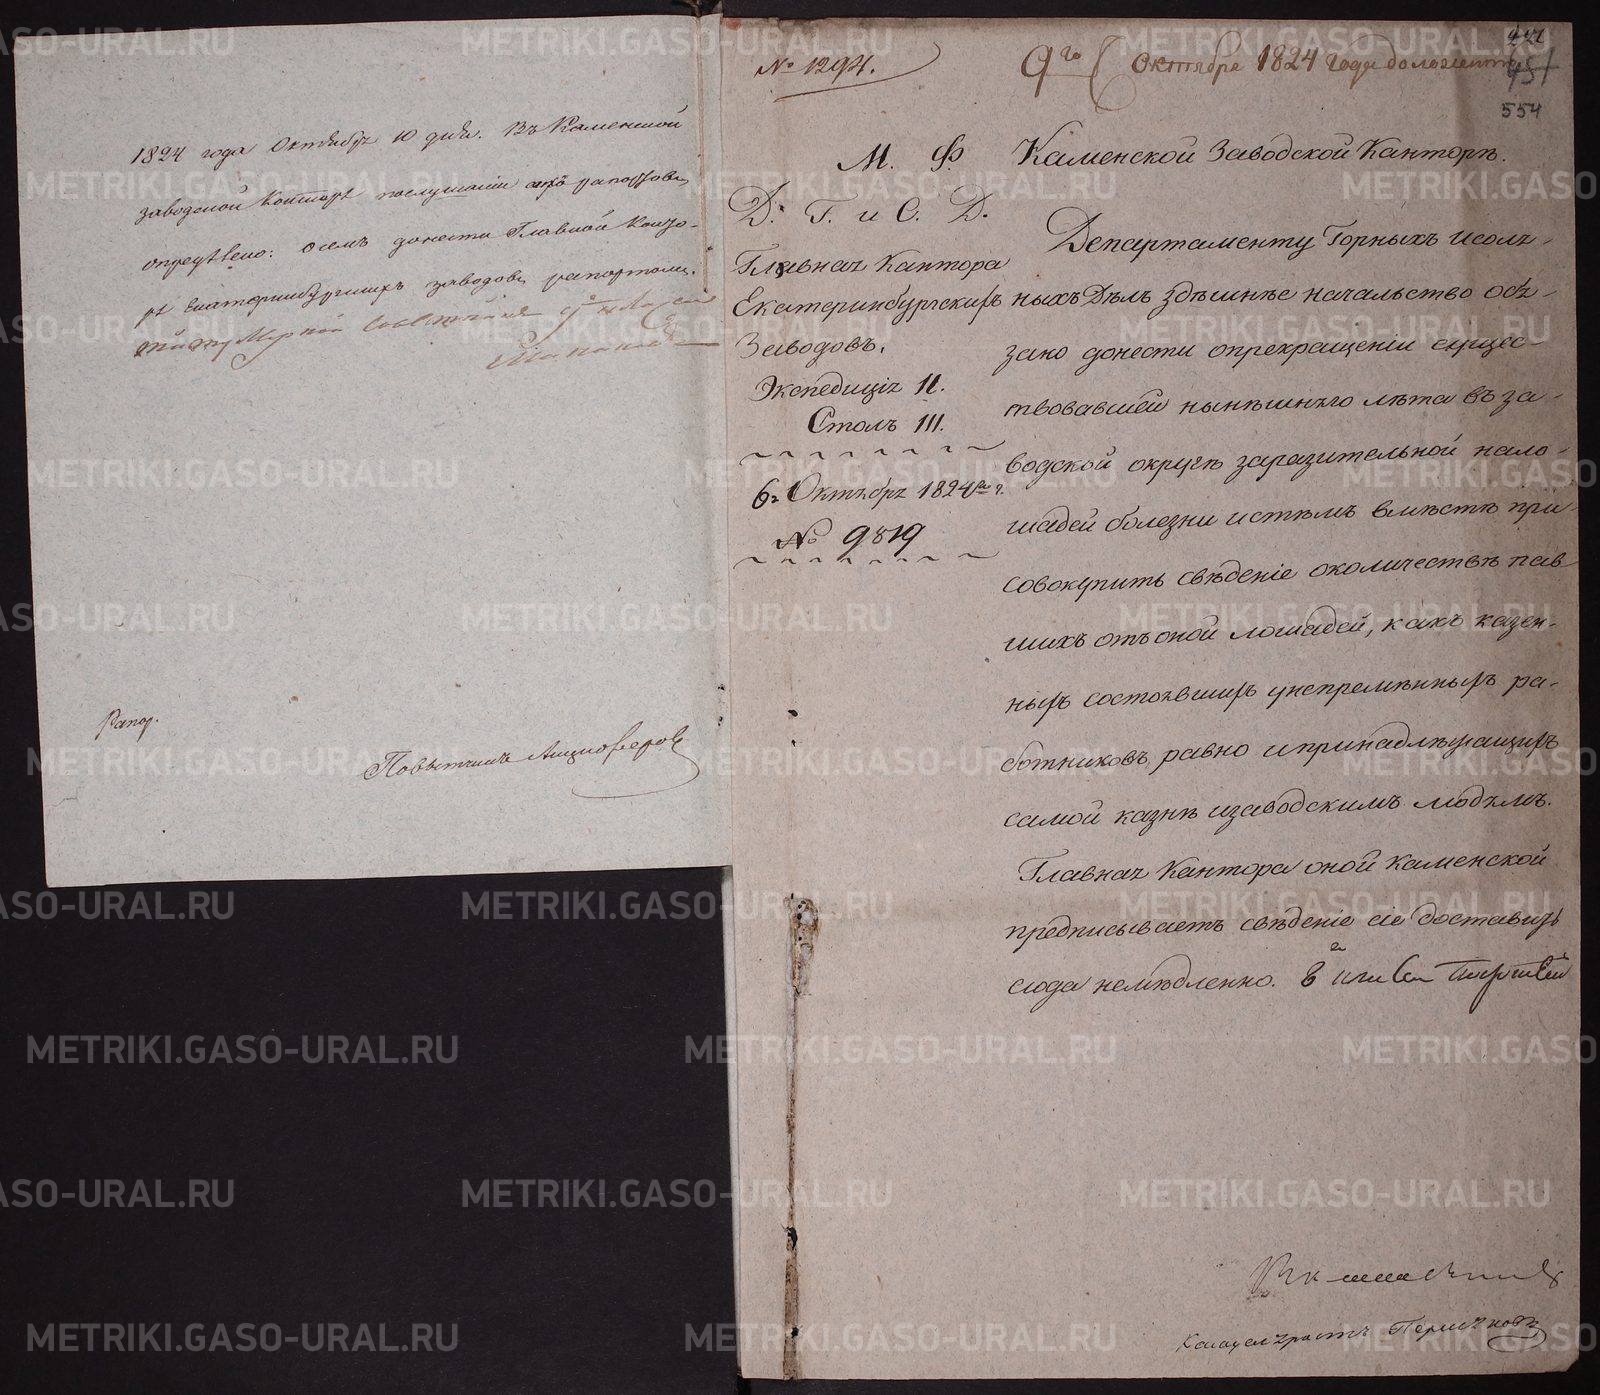 1824 года Октября 10 дня. Въ Каменской
заводской Конторе послушании
определено: о семъ донести Главной Конто-
ре Екатеринбургскихъ заводовъ рапортомъ.
Рапор.
Повытчикъ
№ 1294.
9го Октября 1824 года доложено
451
554
М. Ф.
Д. Г. и С. Д.
Главная Кантора
Екатеринбургскихъ
Заводовъ.
Экспедиція II.
Столъ III.
6 Октября 1824го г.
№ 9819
Каменской Заводской Канторѣ.
Департаменту Горныхъ исоля-
ныхъ Дѣлъ здѣшнѣе начальство обя-
зано донести опрекращеніи сущес-
твовавшей нынѣшняго лѣта въ за-
водской округѣ заразительной нало-
шадей болезни истѣмъ вмѣстѣ при-
совокупить свѣденіе околичествѣ пав-
шихъ отъ оной лошадей, какъ казен-
ныхъ состоявшихъ унепремѣнныхъ ра-
ботниковъ, равно ипринадлежащихъ
самой казнѣ изаводскимъ людямъ.
Главная Кантора оной Каменской
предписываетъ свѣденіе сіе доставить
сюда немѣдленно.